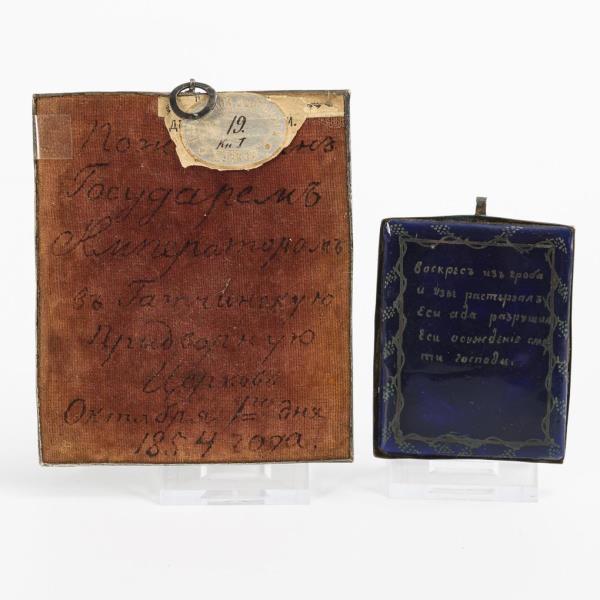 19.
Кн. I
Государемъ
Императоромъ
въ Гатчинскую
Придворную
Церковь
Октября 1го дня
1854 года.
Воскресъ изъ гроба
и узы растерзалъ
Еси ада разрушил
Еси осуждение сме
ти господи.